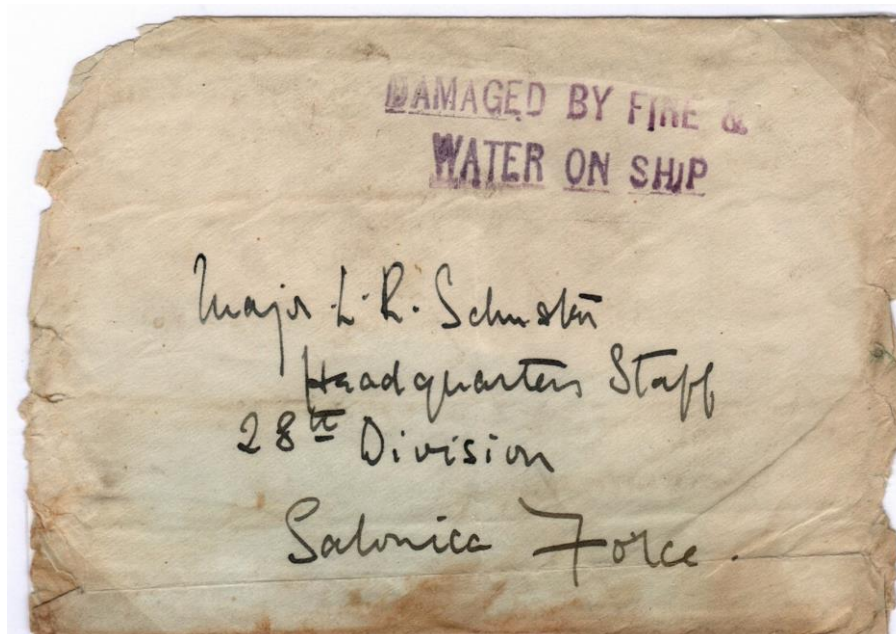 DAMAGED BY FIRE &
WATER ON SHIP
Major L. R. Schuster
Headquarters Staff
28th Division
Salonica Force.